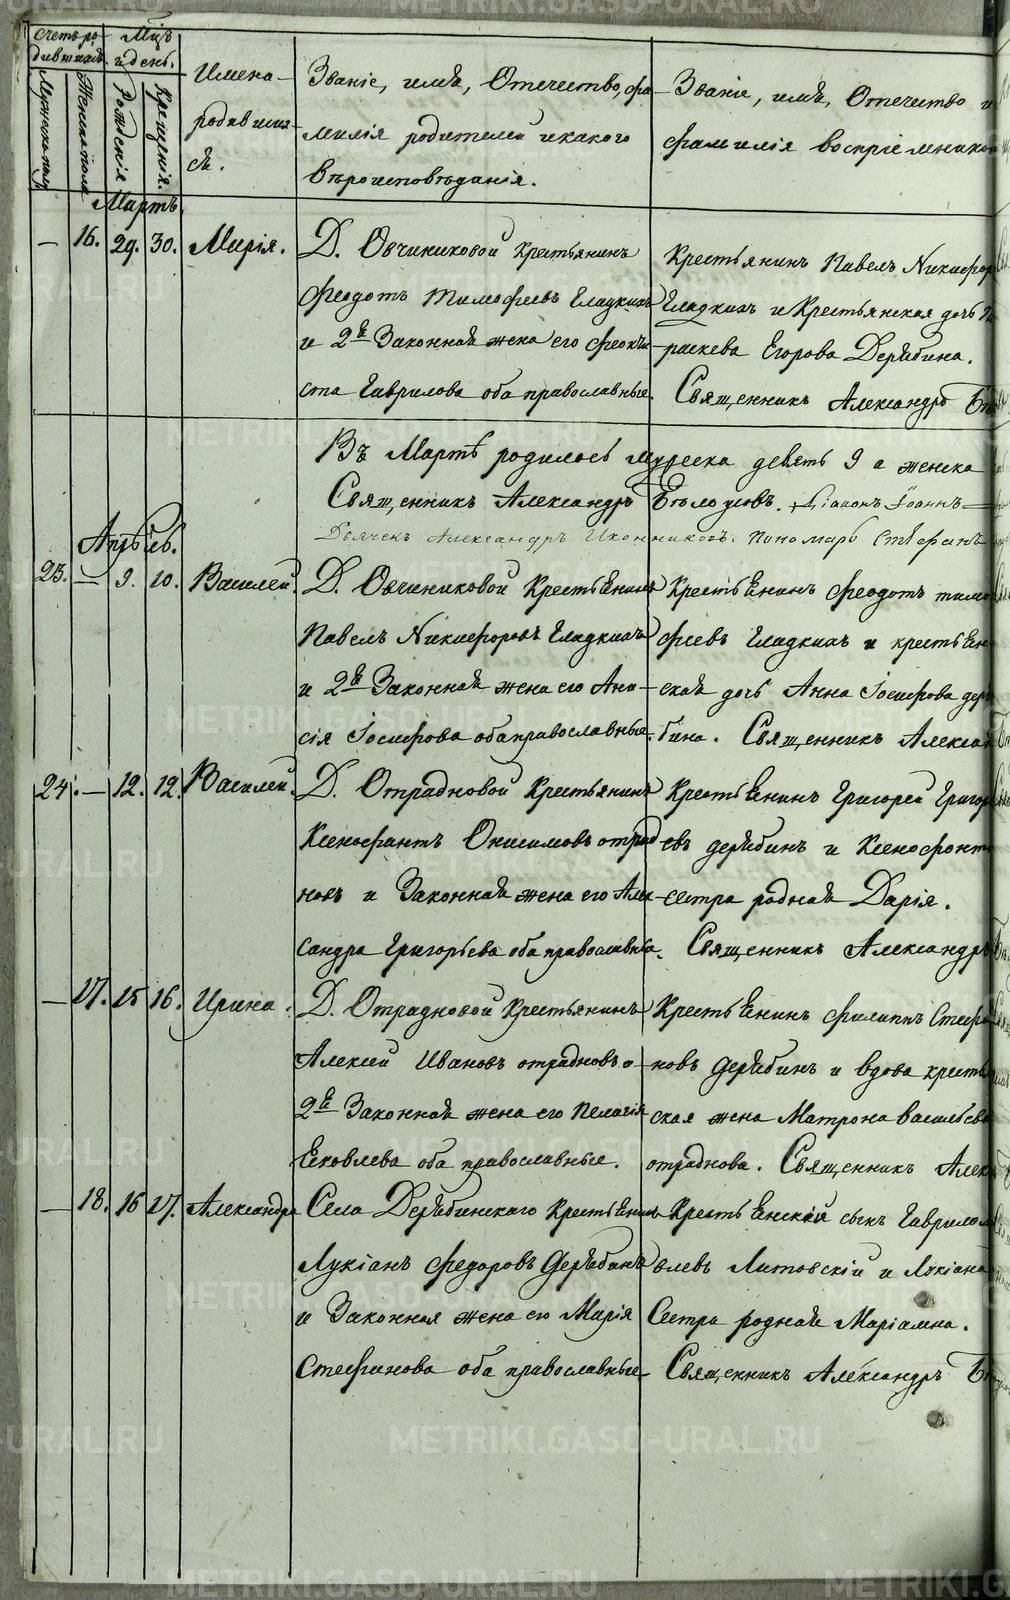 Счетъ ро-
дившихся
Мужеска пола
Женска пола
Мцъ
и день.
Рожденія
Крещенія.
Имена
родивших-
ся.
Званіе, имя, Отечество, фа-
милія родителей и какого
вѣроисповѣданія.
Званіе, имя, Отечество и
фамилія воспріемников
Мартъ
— 16. 29. 30. Марія.
Д. Овчиниковой Крестьянинъ
Феодотъ Тимофеевъ Гладкихъ
и 2й Законной жена его Феокти-
ста Гаврилова оба православные.
Крестьянинъ Павелъ Никифор
Гладкихъ и Крестьянская дочь Па
раскева Егорова Дерябина.
Священникъ Александръ Бѣ
Въ Мартѣ родилось мужеска девять 9 а женска
Священникъ Александръ Бѣлоусовъ. Діаконъ Іоаннъ
Дьячекъ Александръ Иконниковъ. Пономарь Стефанъ
Апрѣль.
23. — 9. 10. Василей.
Д. Овчиниковой Крестьянинъ
Павелъ Никифоровъ Гладкихъ
и 2й Законной жена его Ани-
сія Іосифова оба православные.
Крестьянинъ Феодотъ Тимо
феевъ Гладкихъ и крестьян
ской дочь Анна Іосифова Деря
бина. Священникъ Алексан
24. — 12. 12. Василей.
Д. Отрадновой Крестьянинъ
Ксенофантъ Онисимовъ отрад
новъ и Законной жена его Алек-
сандра Григорьева оба православные.
Крестьянинъ Григорей Григор
евъ Дерябинъ и Ксенофонт
сестра родная Дарія.
Священникъ Александръ Бѣ
— 17. 15 16. Ирина.
Д. Отрадновой Крестьянинъ
Алексей Ивановъ отрадновъ и
2й Законной жена его Пелагія
Яковлева оба православные.
Крестьянинъ Филиппъ Стефа
новъ Дерябинъ и вдова крестьян
ская жена Матрона Васильева
отраднова. Священникъ Алек
— 18. 16 17. Александра
Села Дерябинскаго Крестьянинъ
Лукіанъ Федоровъ Дерябинъ
и Законная жена его Марія
Стефанова оба православные
Крестьянскій сынъ Гаврило
влевъ Литовскій и Лукіана
Сестра родная Маріамна.
Священникъ Александръ Бѣ
METRIKI.GASO-URAL.RU